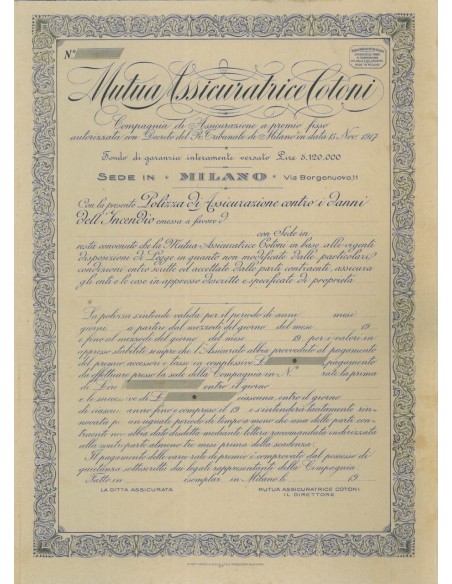 N°
Mutua Assicuratrice Cotoni
Compagnia di Assicurazione a premio fisso
autorizzata con Decreto del R. Tribunale di Milano in data 15 Nov. 1917
Fondo di garanzia interamente versato Lire 5.120.000
SEDE IN * MILANO * Via Borgonuovo, 11
Con la presente Polizza di Assicurazione contro i danni
dell'Incendio emessa a favore d
con Sede in
resta convenuto che la Mutua Assicuratrice Cotoni in base alle vigenti
disposizioni di Legge in quanto non modificate dalle particolari
condizioni entro scritte ed accettate dalle parti contraenti, assicura
gli enti e le cose in appresso descritte e specificate di proprietà
La polizza s'intende valida per il periodo di anni mesi
giorni a partire dal mezzodì del giorno del mese 19
e fino al mezzodì del giorno del mese 19 per i valori in
appresso stabiliti sempre che l'Assicurato abbia provveduto al pagamento
del premio accessori e tassa in complessive L. pagamento
da effettuare presso la sede della Compagnia in N° rate la prima
di L. entro il giorno
e le successive di L. ciascuna, entro il giorno
di ciascun anno fino e compreso il 19 e s'intenderà tacitamente rin-
novata per un uguale periodo di tempo a meno che una delle parti con-
traenti non abbia dato disdetta mediante lettera raccomandata indirizzata
alla controparte almeno tre mesi prima della scadenza.
Il pagamento delle varie rate di premio è comprovato dal possesso di
quietanza sottoscritta dai legali rappresentanti della Compagnia.
Fatto in esemplari in Milano li 19
LA DITTA ASSICURATA
MUTUA ASSICURATRICE COTONI
IL DIRETTORE